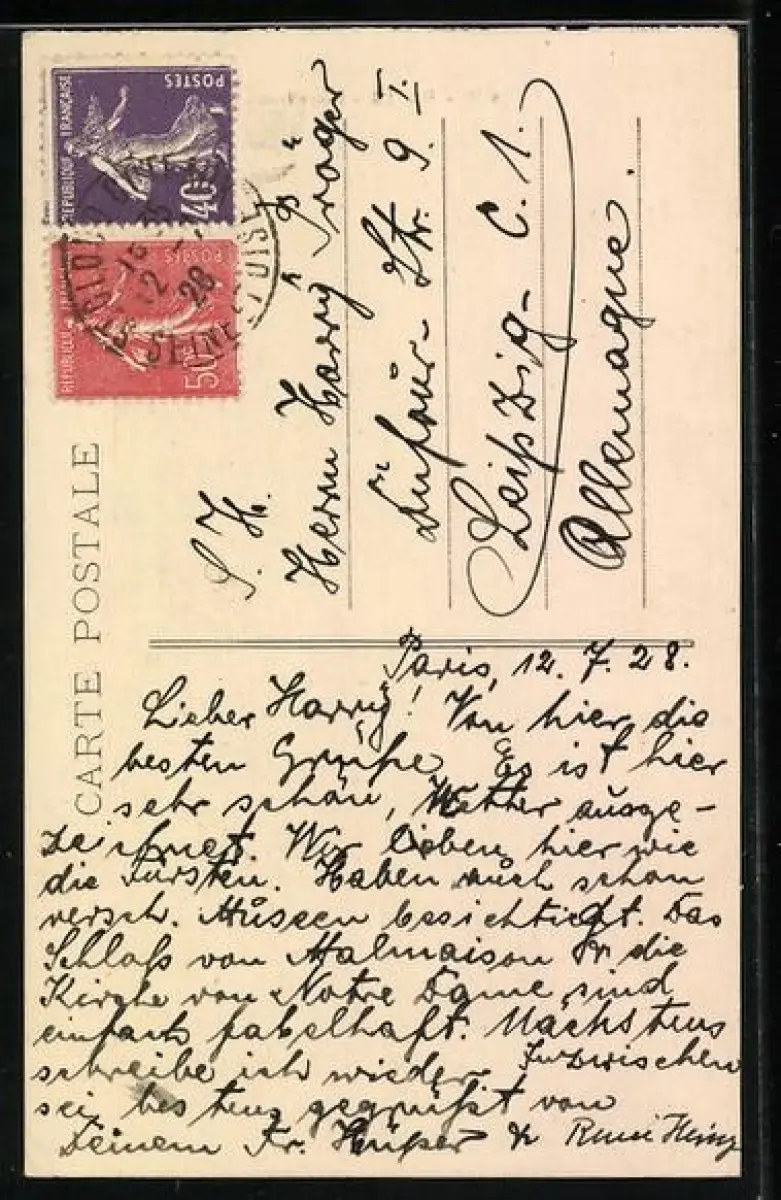 CARTE POSTALE
REPUBLIQUE FRANÇAISE
POSTES
40
REPUBLIQUE
POSTES
50
SEINE
28
S. H.
Herrn Harry Präger
Dufour-Str. 9. I.
Leipzig- C. 1.
Allemagne.
Paris, 12. 7. 28.
Lieber Harry! Von hier die
besten Grüße. Es ist hier
sehr schön, Wetter ausge-
zeichnet. Wir leben hier wie
die Fürsten. Haben auch schon
versch. Museen besichtigt. Das
Schloß von Malmaison die
Kirche von Notre Dame sind
einfach fabelhaft. Nächstens
schreibe ich wieder. Inzwischen
sei bestens gegrüßt von
Deinem Fr. &